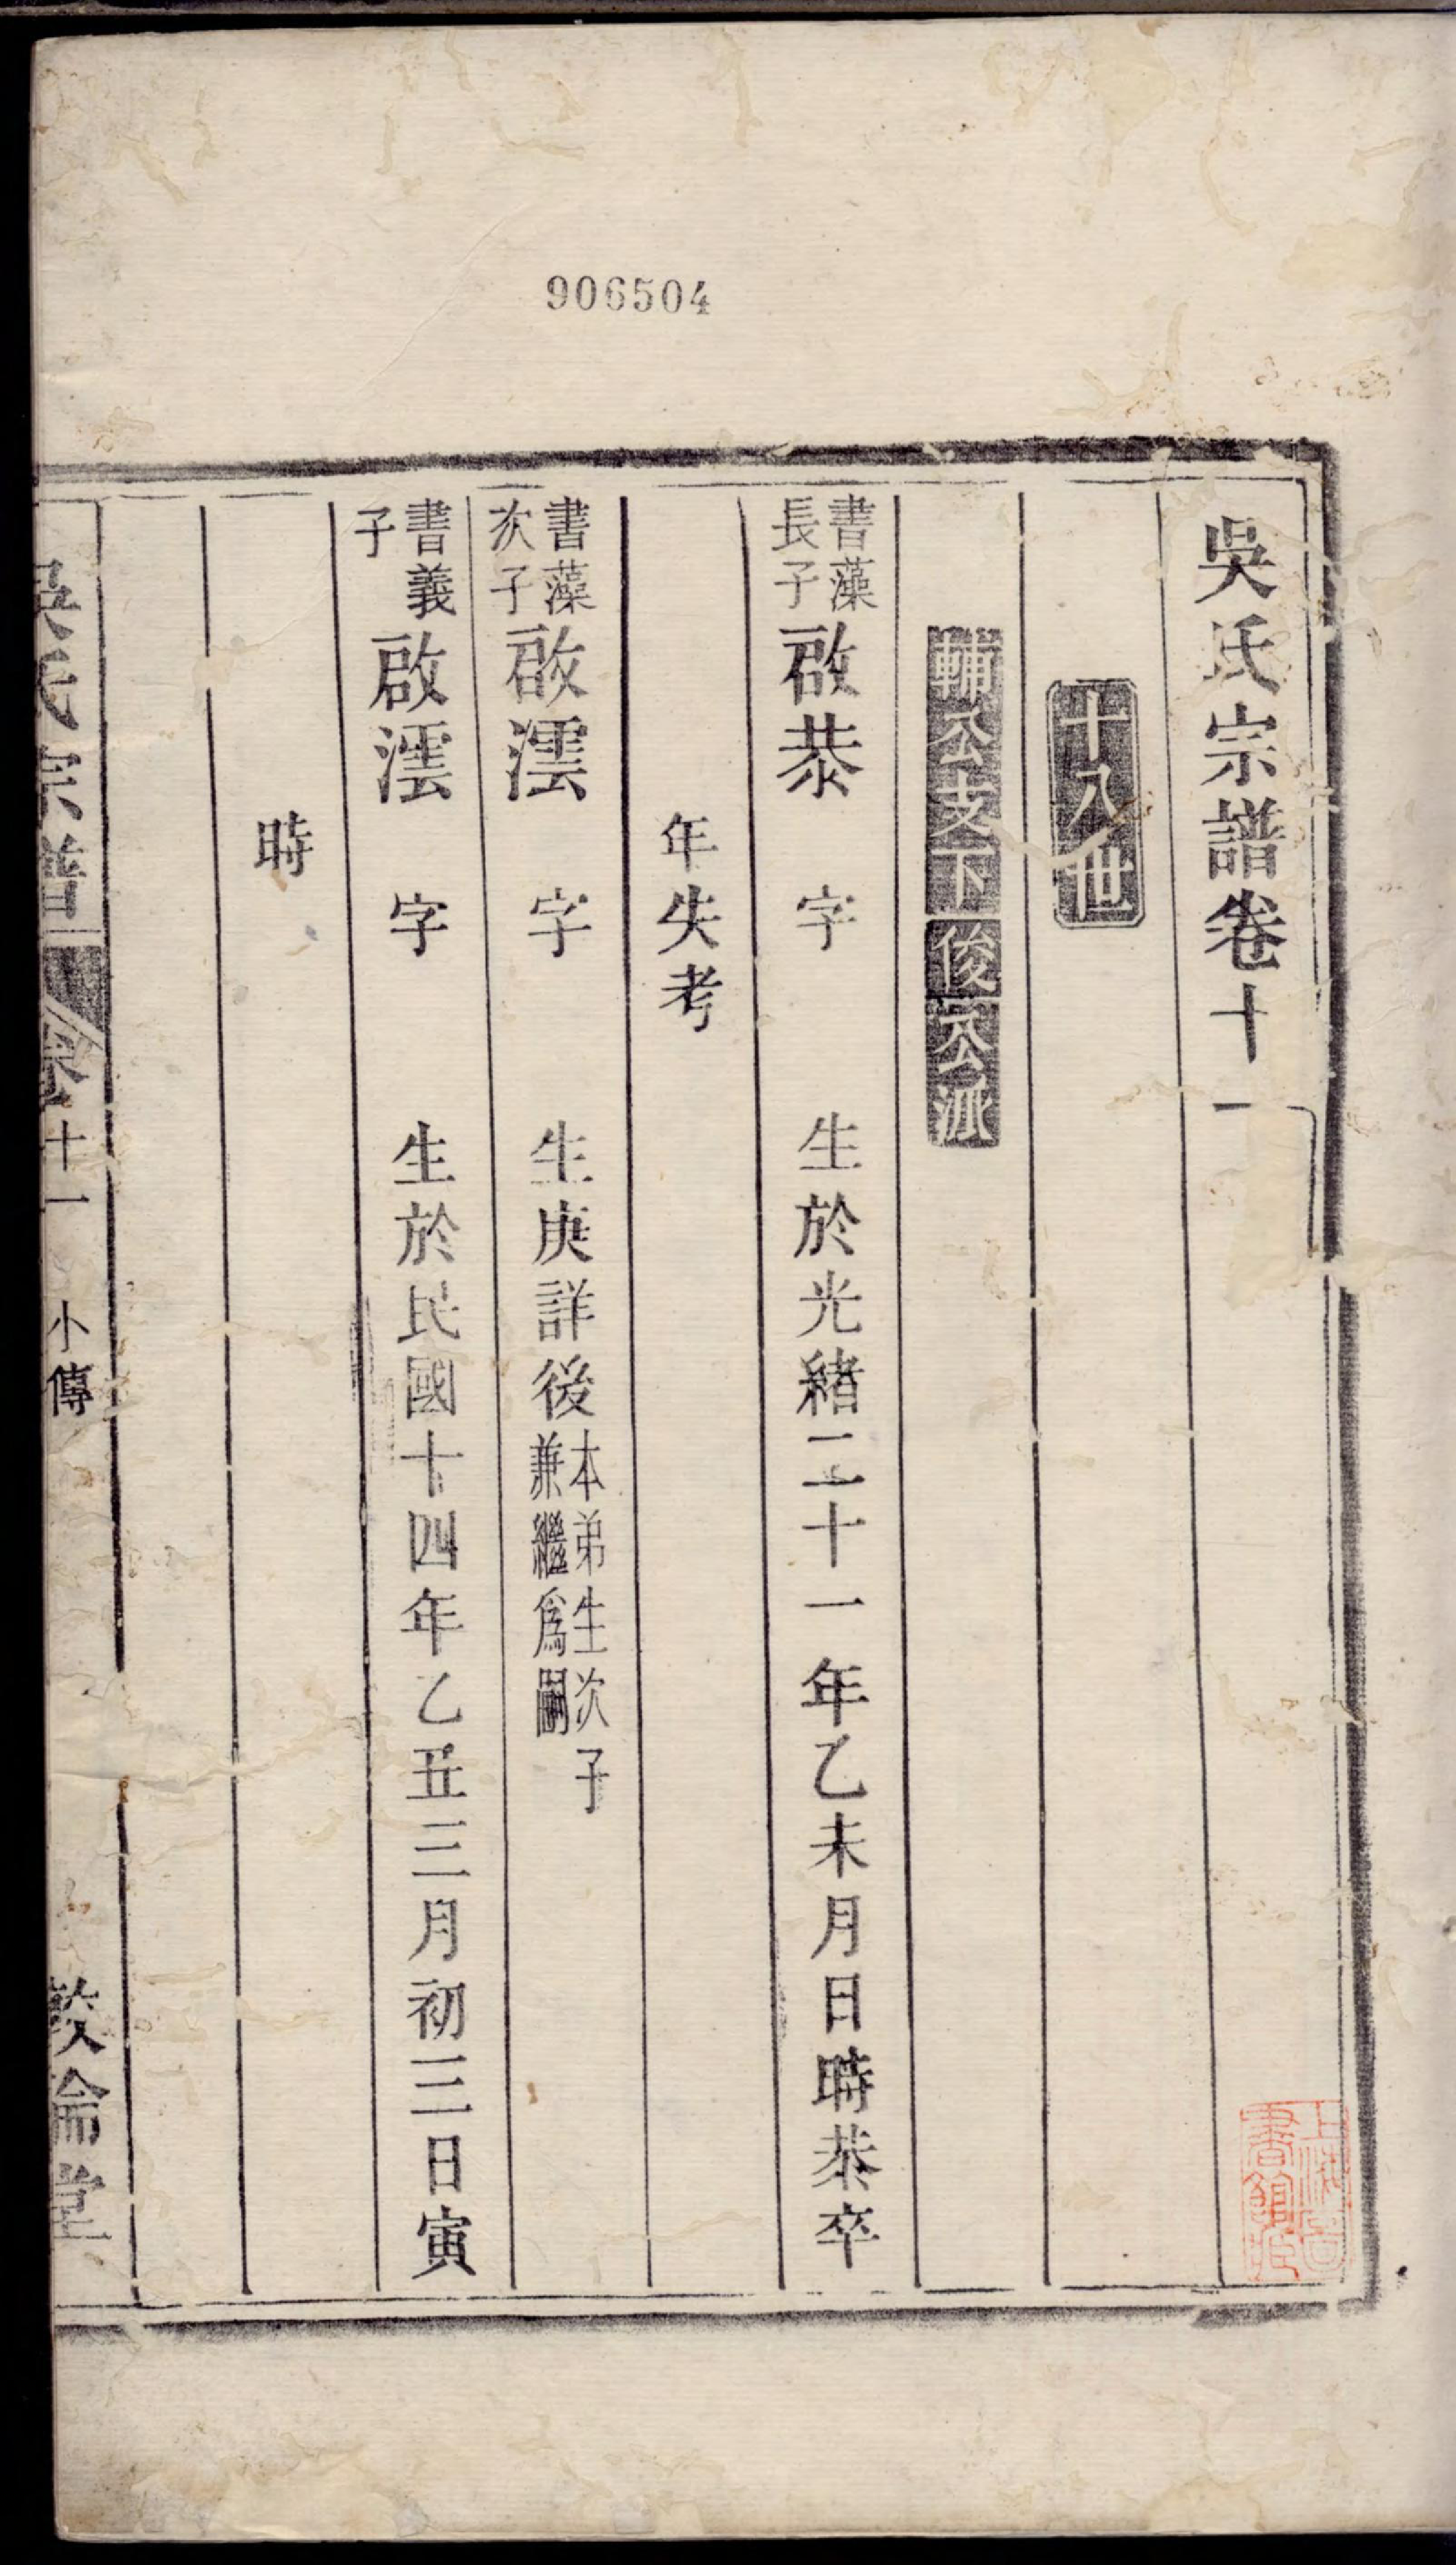 906504
吳氏宗譜卷十一
十八世
輔公支下俊公派
書藻長子啟恭 字 生於光緒二十一年乙未月日時恭卒
年失考
書藻次子啟澐 字 生庚詳後本弟生次子兼繼爲嗣
書義子啟澐 字 生於民國十四年乙丑三月初三日寅
時
吳氏宗譜 卷十一 小傳 敦倫堂
上海圖書館藏